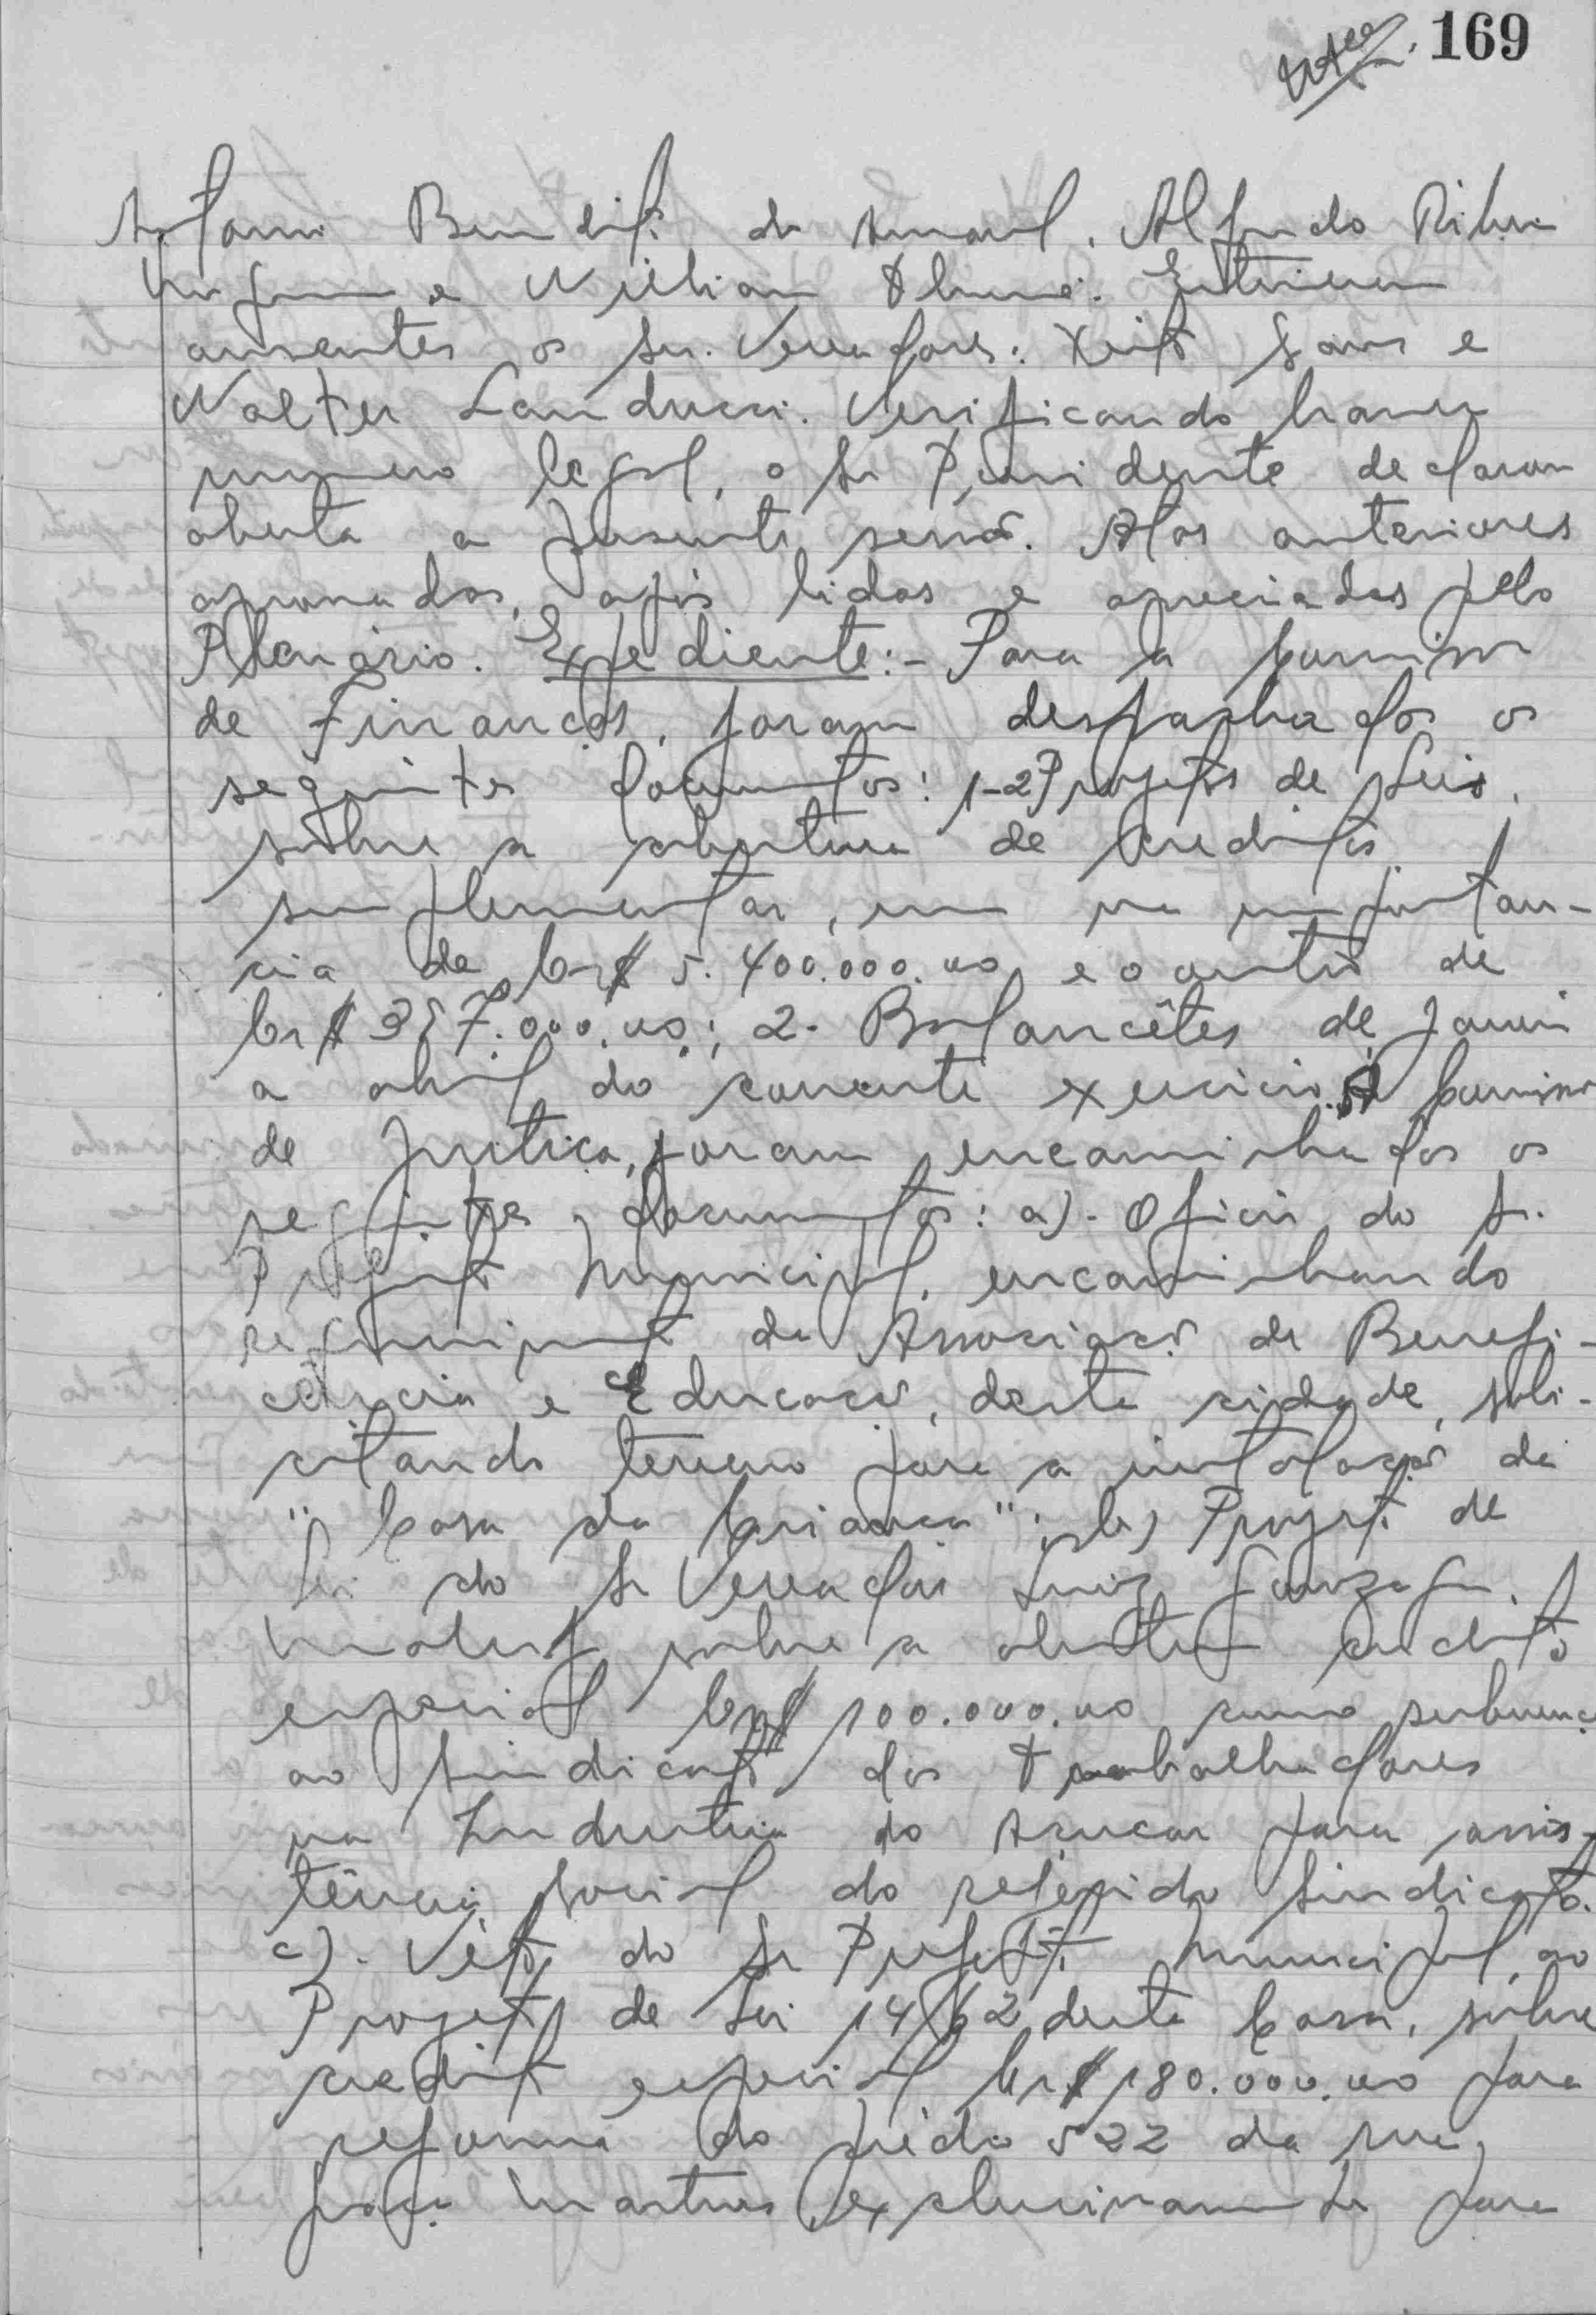 169
Antonio Benedito do Amaral, Alfredo Ribeiro
e Willian Thomé. Estiveram
ausentes os Srs. Vereadores: Xisto e
Walter Landucci. Verificando haver
numero legal, o Sr Presidente declarou
aberta a presente sessão. Atas anteriores
aprovadas, após lidas e apreciadas pelo
Plenário. Expediente:- Para a Comissão
de Finanças, foram despachados os
seguintes documentos: 1-2 Projetos de Leis,
sôbre a abertura de Creditos
suplementar, um na importan-
cia de Cr$ 5.400.000,00 e o outro de
Cr$ 387.000,00; 2- Balancêtes de Janeiro
a abril do corrente exercicio. A Comissão
de Justiça, foram encaminhados os
seguintes documentos: a)- Oficio do Sr.
Prefeito Municipal, encaminhando
requerimento da Associação de Benefi-
cência e Educação, desta cidade, soli-
citando terreno para a instalação da
"Casa da Criança"; b) Projeto de
Lei do Sr Vereador Luiz Gonzaga
sobre a abertura credito
especial Cr$ 100.000,00 como subvenção
ao Sindicato dos Trabalhadores
na Industria do Açucar para assis-
tência social do referido Sindicato.
c)- Véto do Sr Prefeito Municipal, ao
Projeto de Lei 14/62 desta Casa, sobre
credito especial Cr$ 180.000,00 para
reforma do prédio 522 da rua
Martins exclusivamente para